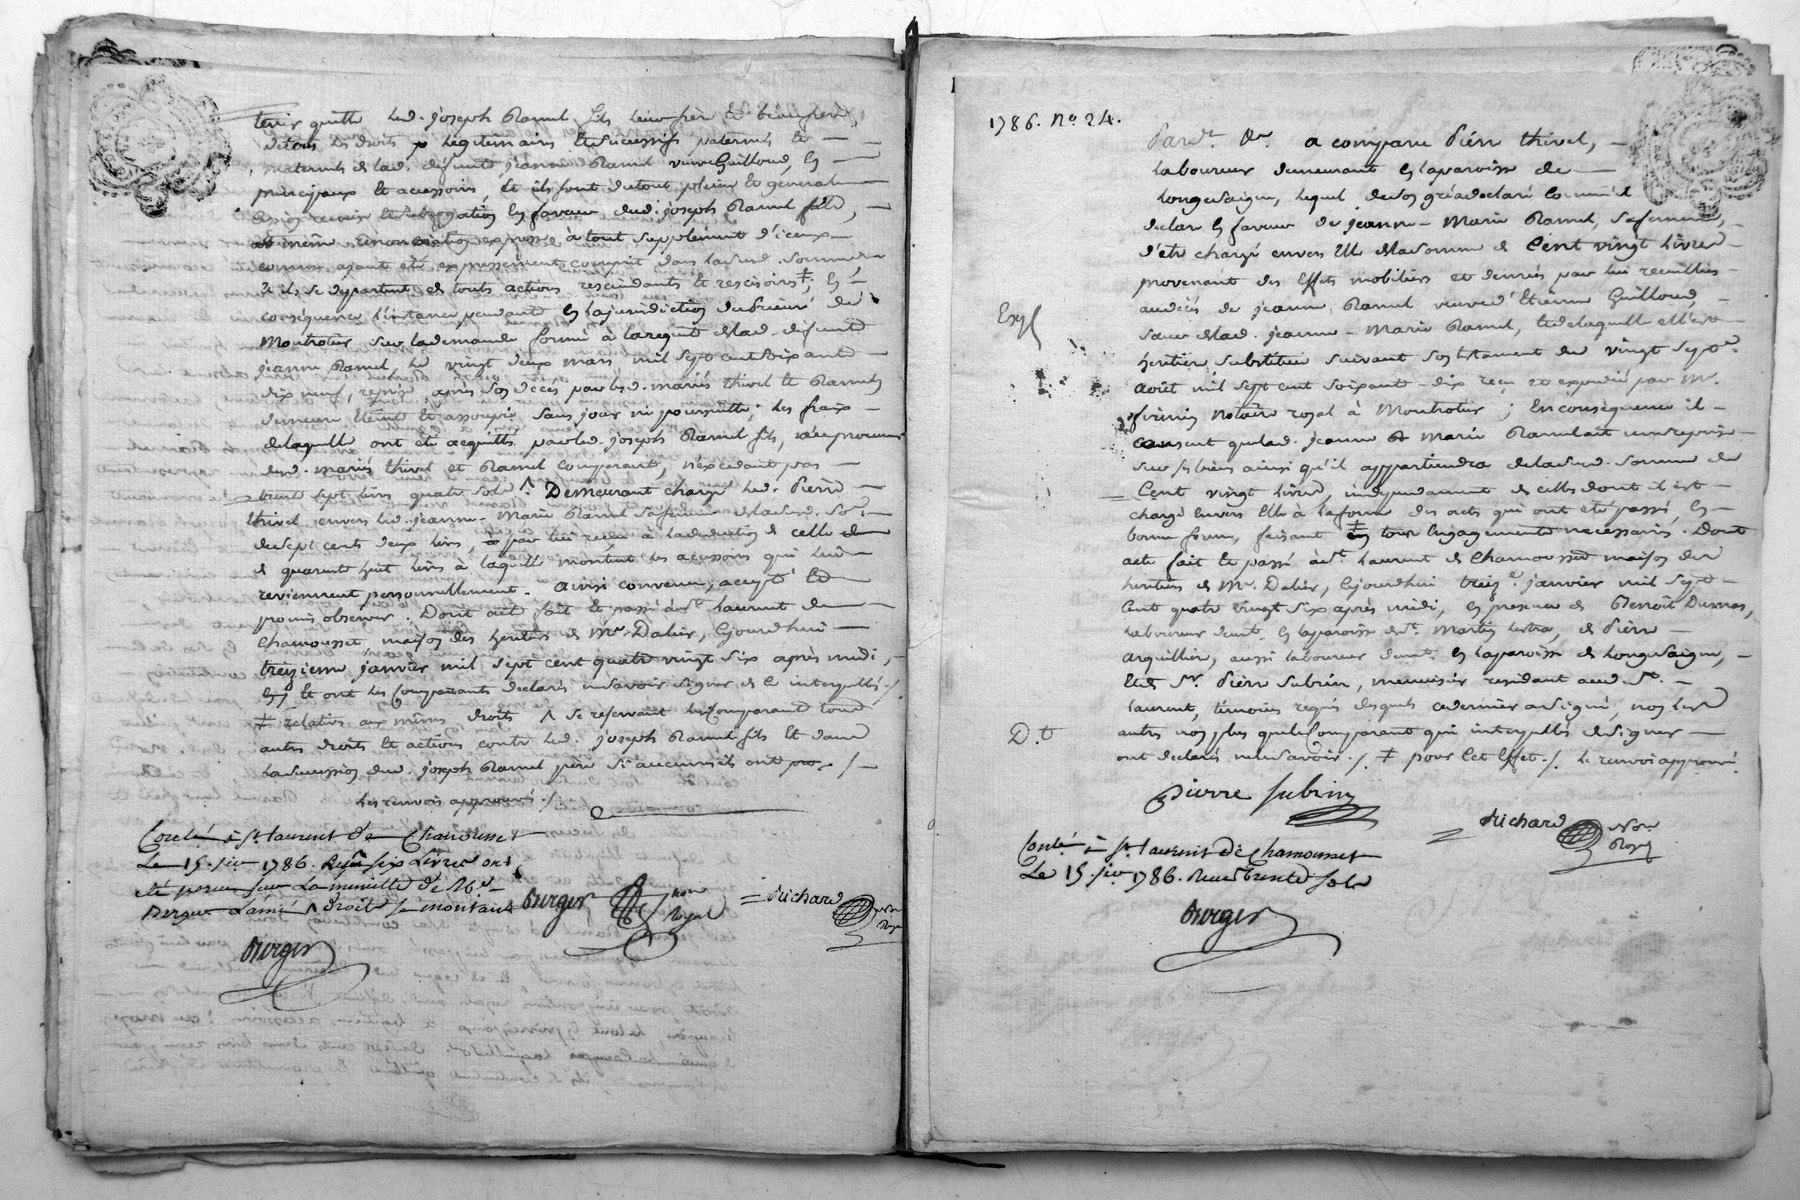 tenir quitte led. joseph Ramel fils leur frère et beaufrere,
de tous les droits légitimaires et successifs paternels et
maternels de lad. défunte jeanne Ramel veuve Guilloud, en
principaux et accessoires, et ils font du tout pleine et generale
en faveur dud. joseph Ramel fils,
à tout supplément d'iceux
comme ayant été expressément compris dans la susd. somme
et ils se departent de touts actions rescindants et rescisoirs ‡; en
conséquence l'instance pendante en la juridiction du prieuré de
Montrotier sur la demande formée à la requete de lad. defunte
jeanne Ramel le vingt deux mars mil sept cent soixante
dix neuf, reprise après son décès par lesd. mariés thivel et Ramel
demeure éteinte et assoupie sans jour ni poursuitte; les fraix
de laquelle ont été acquittés par led. joseph Ramel fils, au procureur
desd. mariés thivel et Ramel comparants, n'excedant pas
trente sept livres quatre sols ^. Demeurant chargé led. Pierre
thivel envers lad. jeanne-Marie Ramel sa femme de la susd. somme
de sept cents deux livres, par lui reçue à la deduction de celle
de quarente huit livres à laquelle montent les accessoirs qui leur
reviennent personnellement. Ainsi convenu, accepté et
promis observer. Dont acte fait et passé à St. laurent de
Chamousset maison des heritiers de Mr. Dalier, cejourdhui
treizieme janvier mil sept cent quatre vingt six après midi,
et ont les comparants declarés ne savoir signer de ce interpellés ./.
‡ relatives aux mêmes droits ^ se reservant les comparants tous
autres droits et actions contre led. joseph Ramel fils et dans
la succession dud. joseph Ramel père si aucuns ils ont ./.
les renvois approuvés ./.
Conlé à St. laurent de Chamousset
Le 15. jer. 1786. Reçu six Livres
été perçu sur La minutte de Me.
Burger L'ainé droits se montant
Burger nore Royal = Richard nore Roy.
Burger
1786. No. 24.
Pardt. &c. a comparu Pierre thivel,
laboureur demeurant en la paroisse de
Longesaigne, lequel de son gré a declaré comme il
declare en faveur de jeanne-Marie Ramel, sa femme,
d'etre chargé envers elle de la somme de Cent vingt livres
provenant des Effets mobiliers et denrées par lui recueillies
au décès de jeanne Ramel veuve d'Etienne Guilloud,
sœur de lad. jeanne-Marie Ramel, et de laquelle elle est
heritiere substituée suivant son testament du vingt sept.
Août mil sept cent soixante-dix reçu et expedié par Me.
notaire royal à Montrotier; En conséquence il
Exp.
consent que lad. jeanne Marie Ramel ait une reprise
sur ses biens ainsi qu'il appartiendra de la susd. somme de
Cent vingt livres, independament de celles dont il est
chargé envers Elle à la forme des actes qui ont été passés, en
bonne forme, faisant ‡ tous Engagements necessaires. Dont
acte fait et passé à St. laurent de Chamousset maison des
heritiers de Mr. Dalier, cejourdhui treize janvier mil sept
Cent quatre vingt six après midi, en presence de Benoit Dumas,
laboureur demt. en la paroisse de St. Martin lestra, de Pierre
arquillier, aussi laboureur demt. en la paroisse de Longesaigne,
et de Sr. Pierre Subrin, menuisier residant aud. St.
laurent, témoins requis desquels ce dernier a signé, non les
D.t
autres non plus que le Comparant qui interpellés de signer
ont declarés ne le savoir ./. ‡ pour cet Effet ./. le renvoi approuvé.
Pierre Subrin
= Richard nore. Royal
Conlé à St. laurent De Chamousset
Le 15. jer. 1786. Reçu trente sols
Burger